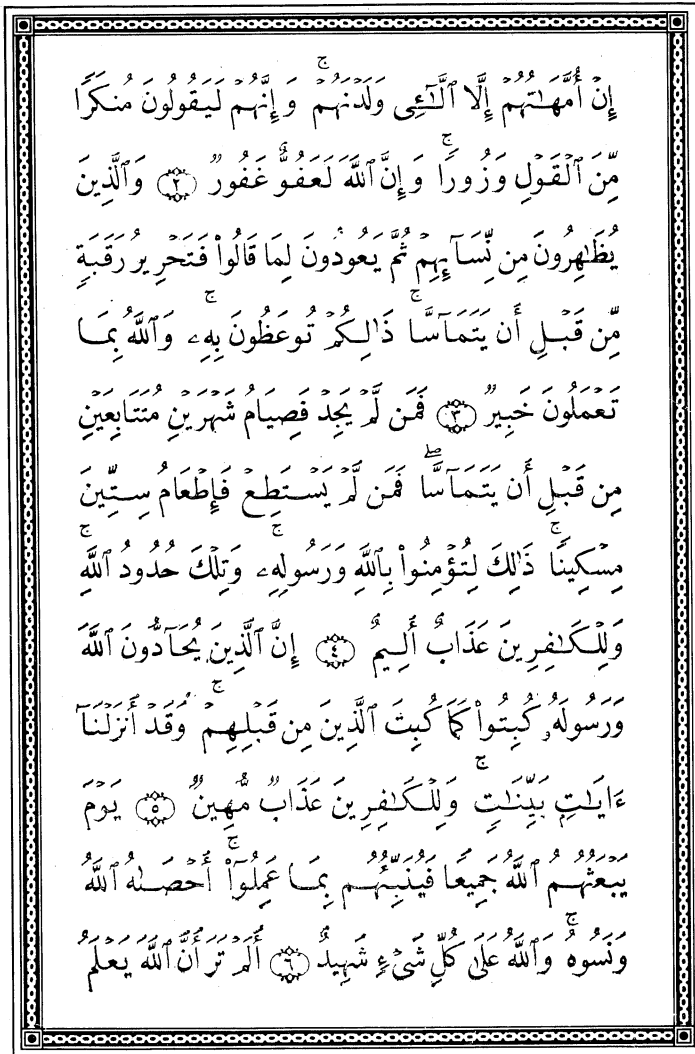 إِنْ أُمَّهَـٰتُهُمْ إِلَّا ٱلَّـٰٓـِٔى وَلَدْنَهُمْ ۚ وَإِنَّهُمْ لَيَقُولُونَ مُنكَرًا
مِّنَ ٱلْقَوْلِ وَزُورًا ۚ وَإِنَّ ٱللَّهَ لَعَفُوٌّ غَفُورٌ ﴿٢﴾ وَٱلَّذِينَ
يُظَـٰهِرُونَ مِن نِّسَآئِهِمْ ثُمَّ يَعُودُونَ لِمَا قَالُوا۟ فَتَحْرِيرُ رَقَبَةٍ
مِّن قَبْلِ أَن يَتَمَآسَّا ۚ ذَٰلِكُمْ تُوعَظُونَ بِهِۦ ۚ وَٱللَّهُ بِمَا
تَعْمَلُونَ خَبِيرٌ ﴿٣﴾ فَمَن لَّمْ يَجِدْ فَصِيَامُ شَهْرَيْنِ مُتَتَابِعَيْنِ
مِن قَبْلِ أَن يَتَمَآسَّا ۖ فَمَن لَّمْ يَسْتَطِعْ فَإِطْعَامُ سِتِّينَ
مِسْكِينًا ۚ ذَٰلِكَ لِتُؤْمِنُوا۟ بِٱللَّهِ وَرَسُولِهِۦ ۚ وَتِلْكَ حُدُودُ ٱللَّهِ ۗ
وَلِلْكَـٰفِرِينَ عَذَابٌ أَلِيمٌ ﴿٤﴾ إِنَّ ٱلَّذِينَ يُحَآدُّونَ ٱللَّهَ
وَرَسُولَهُۥ كُبِتُوا۟ كَمَا كُبِتَ ٱلَّذِينَ مِن قَبْلِهِمْ ۚ وَقَدْ أَنزَلْنَآ
ءَايَـٰتٍۭ بَيِّنَـٰتٍ ۚ وَلِلْكَـٰفِرِينَ عَذَابٌ مُّهِينٌ ﴿٥﴾ يَوْمَ
يَبْعَثُهُمُ ٱللَّهُ جَمِيعًا فَيُنَبِّئُهُم بِمَا عَمِلُوٓا۟ ۚ أَحْصَىٰهُ ٱللَّهُ
وَنَسُوهُ ۚ وَٱللَّهُ عَلَىٰ كُلِّ شَىْءٍ شَهِيدٌ ﴿٦﴾ أَلَمْ تَرَ أَنَّ ٱللَّهَ يَعْلَمُ